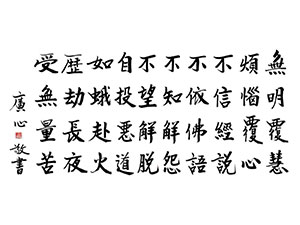 無明覆慧
煩惱覆心
不信經説
不依佛語
不知解怨
不望解脱
自投惡道
如蛾赴火
歴劫長夜
受無量苦
廣心敬書